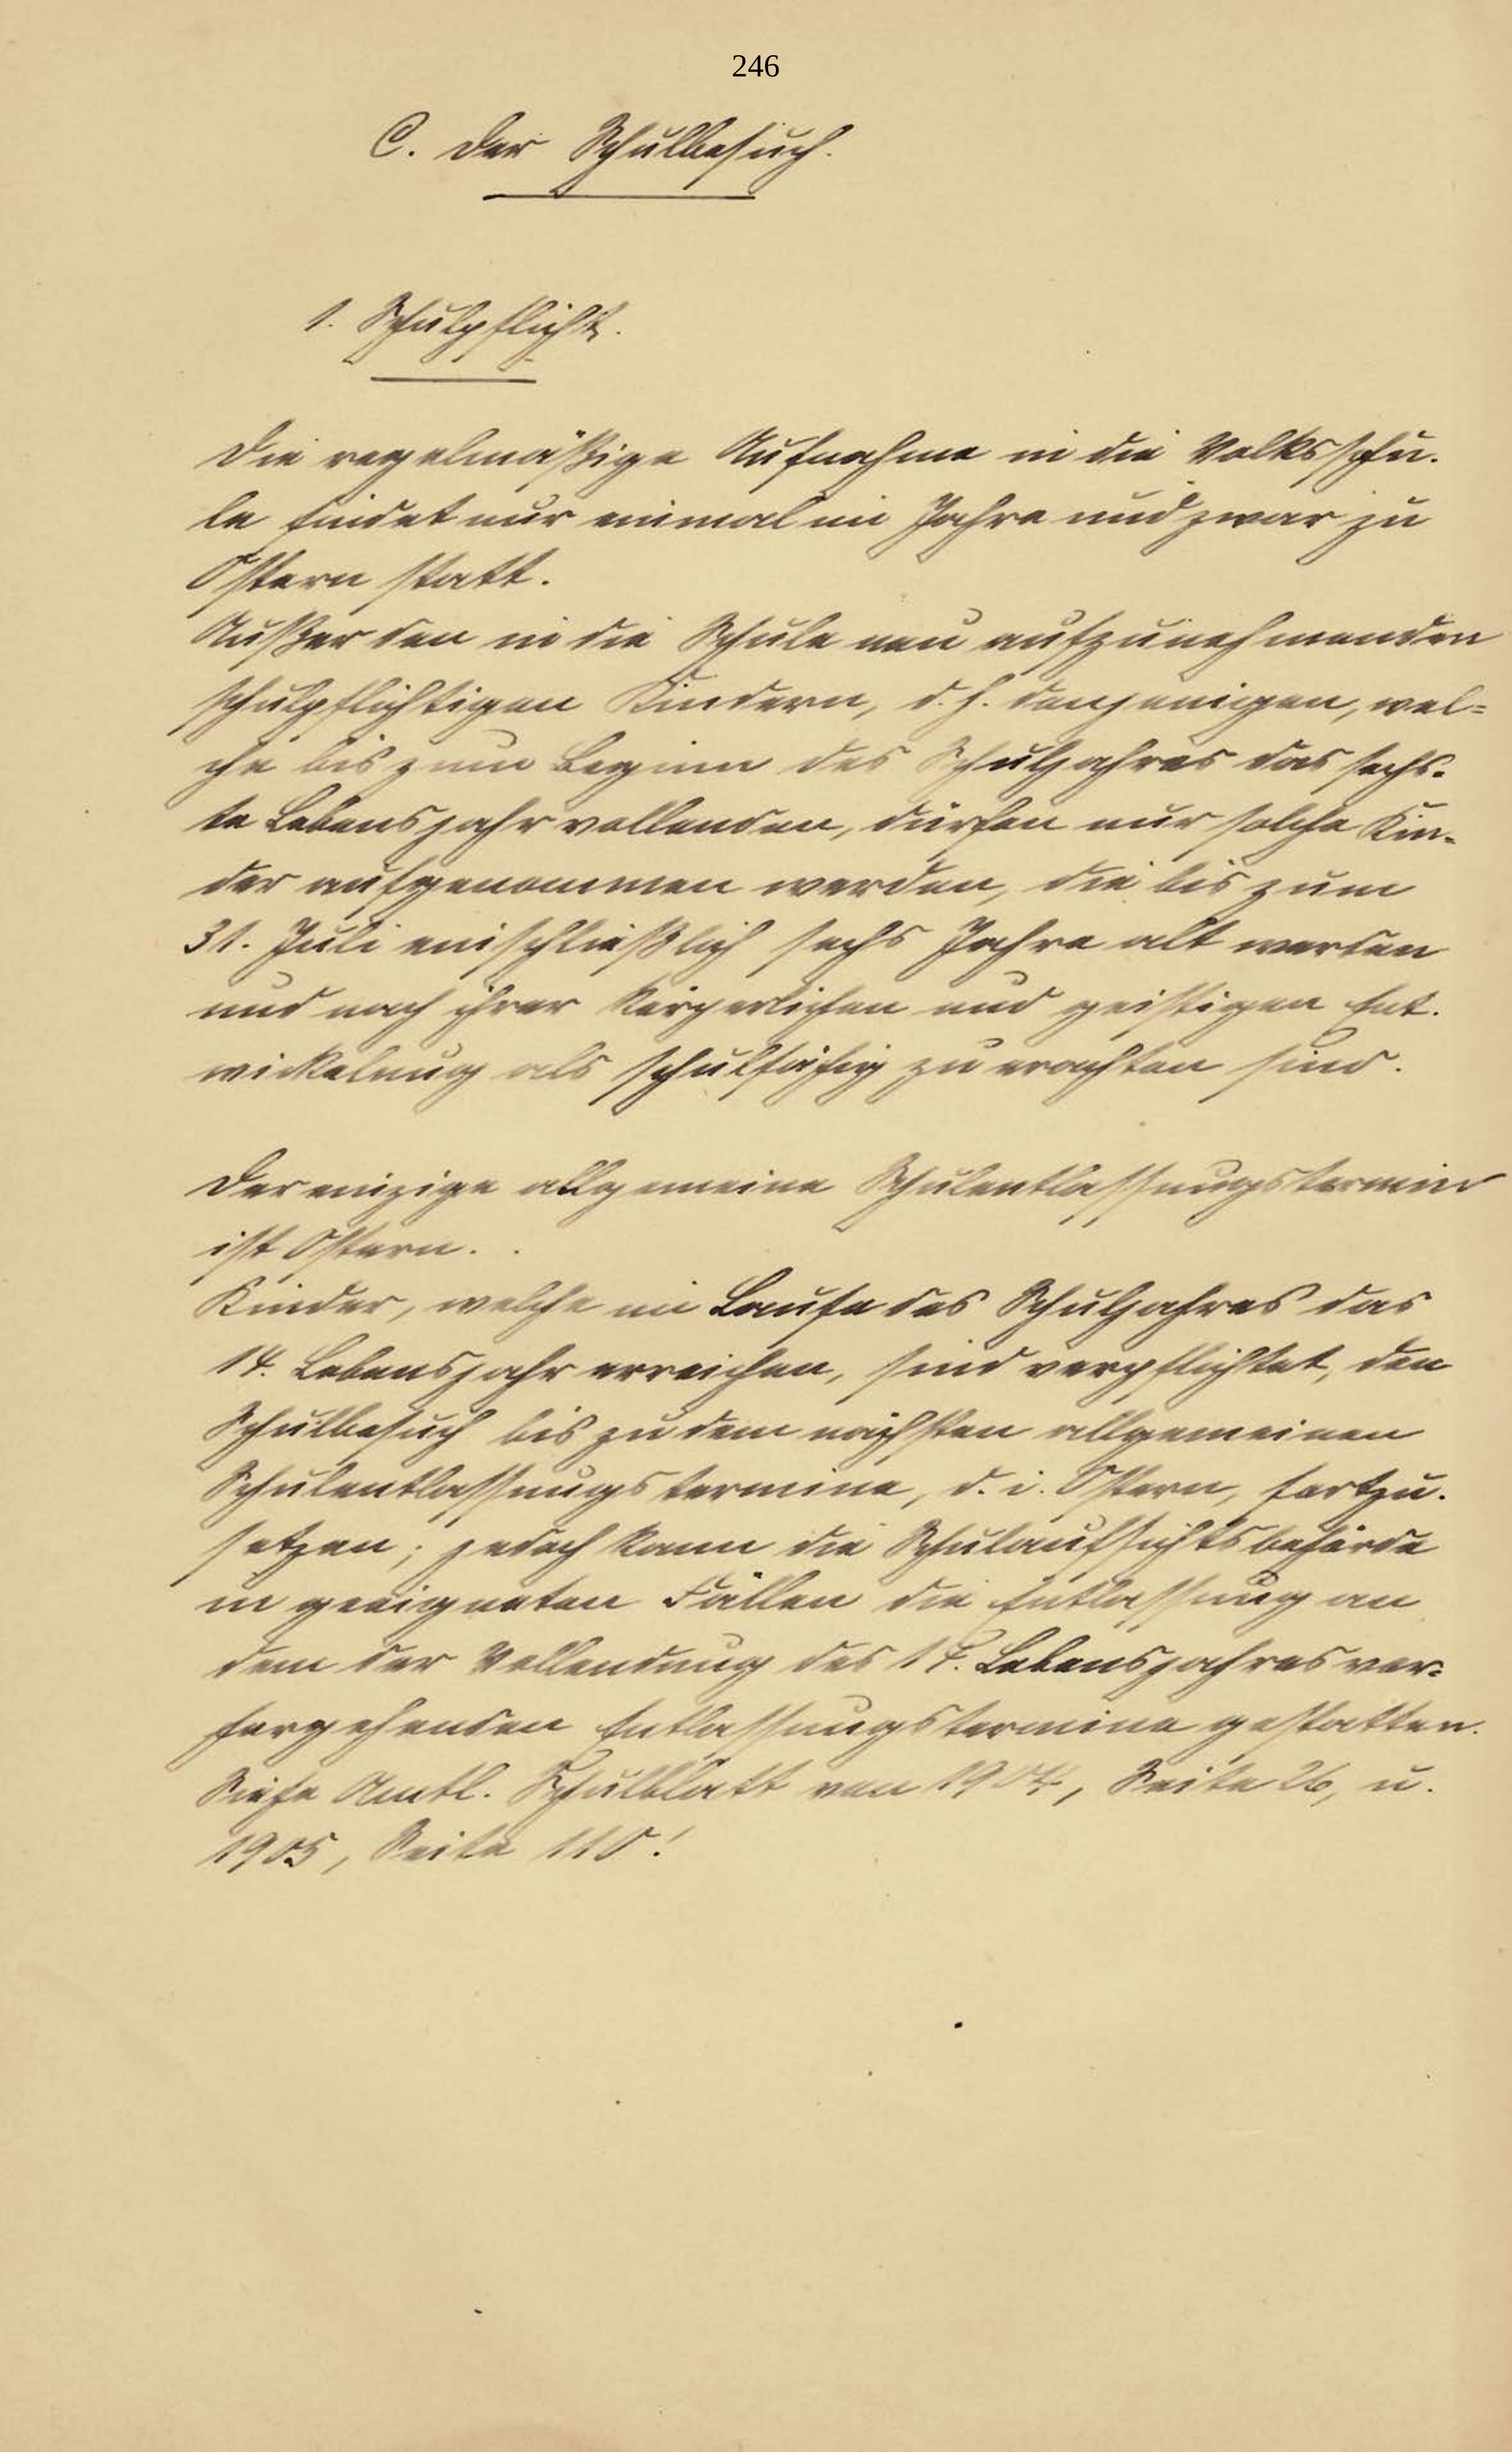 246
C. Der Schulbesuch.
1. Schulpflicht.
Die regelmäßige Aufnahme in die Volksschu-
le findet nur einmal im Jahre und zwar zu
Ostern statt.
Außer den in die Schule neu aufzunehmenden
schulpflichtigen Kindern, d. h. denjenigen, wel=
che bis zum Beginn des Schuljahres das sechs-
te Lebensjahr vollenden, dürfen nur solche Kin-
der aufgenommen werden, die bis zum
31. Juli einschließlich sechs Jahre alt werden
und nach ihrer körperlichen und geistigen Ent-
wickelung als schulfähig zu erachten sind.
Der einzige allgemeine Schulentlassungstermin
ist Ostern.
Kinder, welche im Laufe des Schuljahres das
14. Lebensjahr erreichen, sind verpflichtet, den
Schulbesuch bis zu dem nächsten allgemeinen
Schulentlassungstermine, d. i. Ostern, fortzu-
setzen; jedoch kann die Schulaufsichtsbehörde
in geeigneten Fällen die Entlassung an
dem der Vollendung des 14. Lebensjahres vor=
hergehenden Entlassungstermine gestatten.
Siehe Amtl. Schulblatt von 1904, Seite 26, u.
1905, Seite 110!